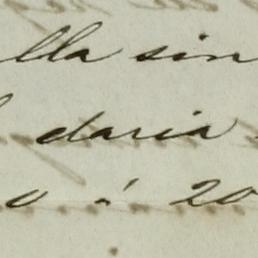 lla sin
daria
o á 20